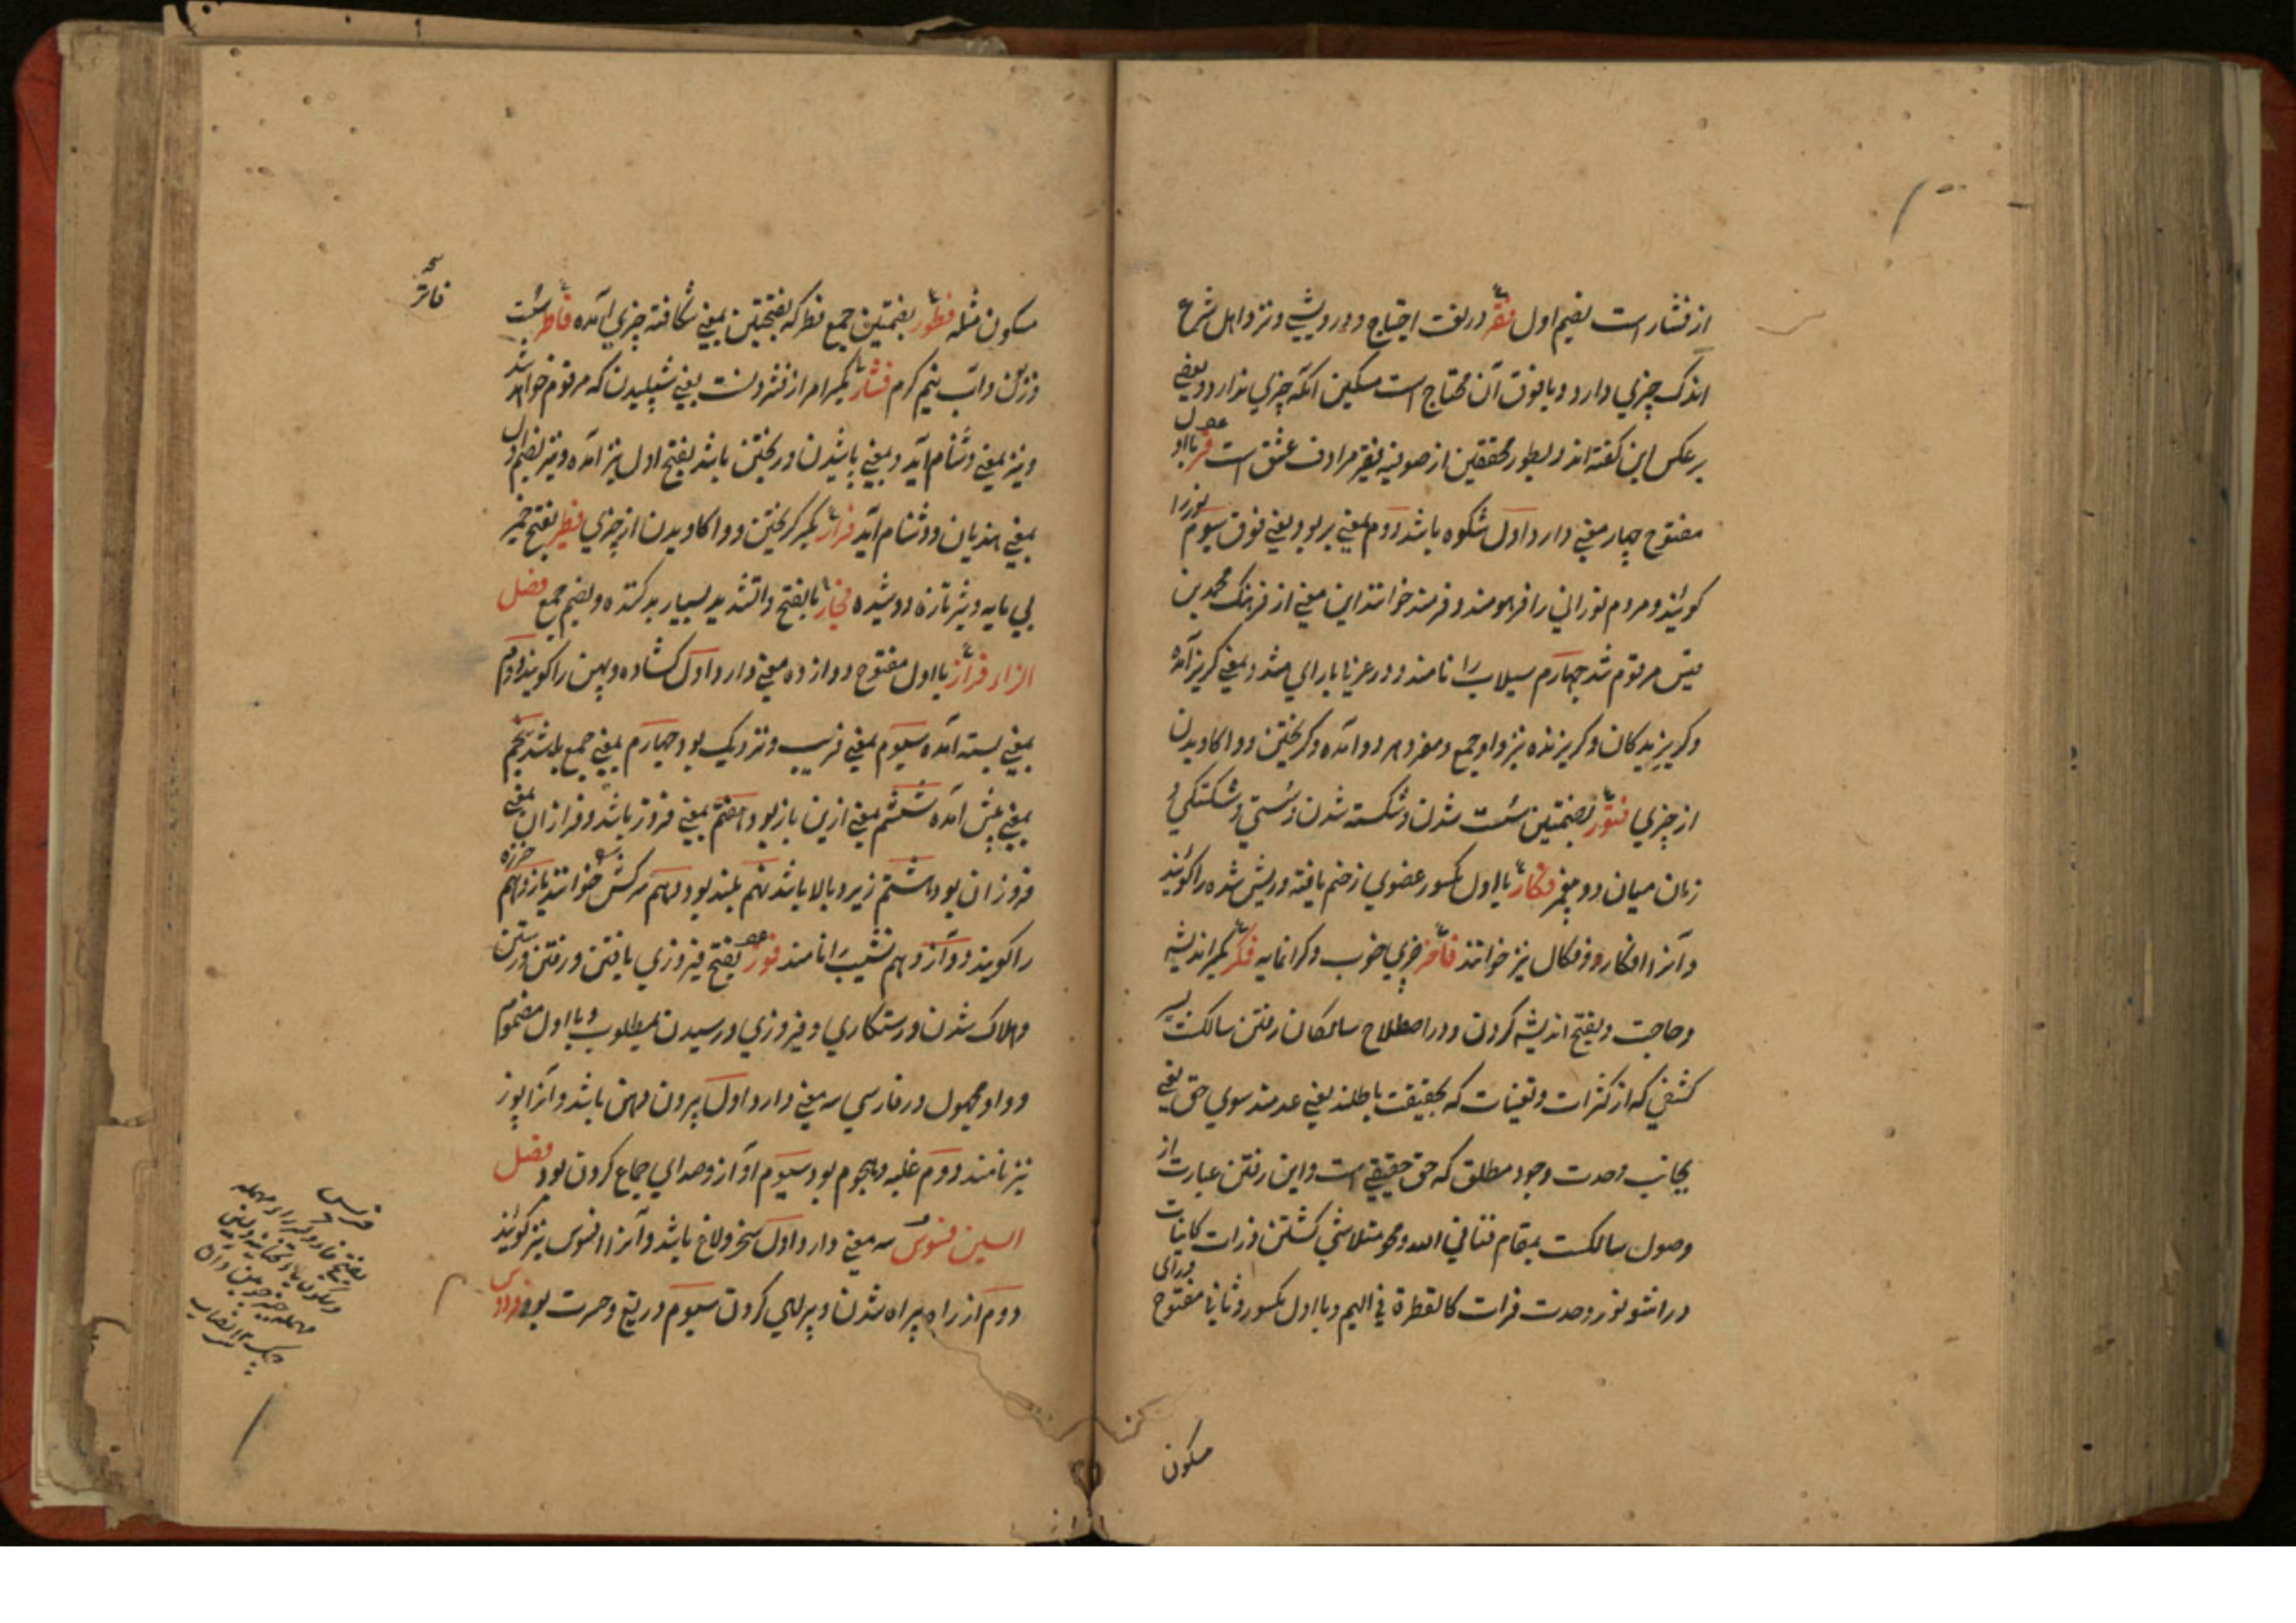 از فشار است بضم اول فقر در لغت احتیاج و درویشی و نزد اهل شرع
اندک چیزی دارد و یا قوت آن محتاج است مسکین آنکه چیزی ندارد و بعضی
بر عکس این گفته اند و بطور محققین از صوفیه فقر مرادف عشق است فر با اول
مفتوح چهار معنی دارد اول شکوه باشد دوم بمعنی بر بود یعنی فوق سیوم نور را
گویند و مردم نورانی را فرهومند و فرمند خوانند این معنی از فرهنگ محمد بن
قیس مرقوم شد چهارم سیلاب را نامند و در عربی بمعنی گریز آمده
و گریزندگان و گریزنده نیز واو جمع و مفرد هر دو آمده و گریختن و واکاویدن
از چیزی فتور بضمتین سست شدن و شکسته شدن و سستی و شکستگی و
زمان میان دو پیغمبر فکار با اول مکسور عضوی از خم یافته و ریش شده را گویند
و آنرا افکار و فکال نیز خوانند فاخر چیزی خوب و گرانمایه فکر بکسر اندیشه
و حاجت و بفتح اندیشه کردن و در اصطلاح سالکان رفتن سالکت بسیر
کشفی که از کثرات و تعینات که بحقیقت باطلند یعنی عدمند سوی حق یعنی
بجانب وحدت وجود مطلق که حق حقیقی است و این رفتن عبارت از
وصول سالکست بمقام فنا فی الله و محو متلاشی گشتن ذرات کاینات
در اشعه نور وحدت ذات کالقطرة فی الیم و با اول مکسور و ثانی مفتوح
سکون
سکون مثله فطور بضمتین جمع فطر که بفتحتین بمعنی شکافته چیزی آمده فاطر سست
و زبون و آب نیم گرم فشار بکسر امر از فشردنست یعنی شپلیدن که مرقوم خواهد شد
و نیز بمعنی دشنام آید و بمعنی پاشیدن و ریختن باشد بفتح اول نیز آمده و نیز بضم اول
بمعنی هذیان و دشنام آید فرار بکسر گریختن و واکاویدن از چیزی فطیر بفتح خمیر
بی مایه و شیر تازه دوشیده فجار بالفتح والتشدید بسیار بدکننده و بضم جمع فصل
الزاء فراز با اول مفتوح دوازده معنی دارد اول گشاده و پهن را گویند دوم
بمعنی بسته آمده سیوم بمعنی قریب و نزدیک بود چهارم بمعنی جمع باشد پنجم
بمعنی پیش آمده ششم بمعنی ازین باز بود هفتم بمعنی فروز باشد و فرازان بمعنی
فروزان بود هشتم زیر و بالا باشد نهم بلند بود دهم سرکش خوانند یازدهم
را گویند دوازدهم نشیب را نامند فوز بفتح فیروزی یافتن و رفتن و رستن
و هلاک شدن و رستگاری و فیروزی و رسیدن بمطلوب و با اول مضموم
و واو مجهول در فارسی سه معنی دارد اول بیرون دهن باشد و آنرا پوز
نیز نامند دوم غلبه و هجوم بود سیوم آواز و صدای جماع کردن بود فصل
السین فسوس سه معنی دارد اول سخر و لاغ باشد و آنرا افسوس نیز گویند
دوم از راه بیراه شدن و بیراهی کردن سیوم دریغ و حسرت بود فردوس
فاتر